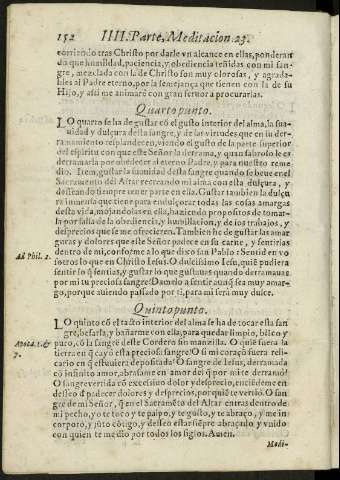 152 IIII. Parte, Meditacion. 25.
corriendo tras Christo por darle vn alcance en ellas, ponderan
do que humildad, paciencia, y obediencia teñidas con mi san-
gre, mezclada con la de Christo son muy olorosas, y agrada-
bles al Padre eterno, por la semejança que tienen con la de su
Hijo, y assi me animarè con gran feruor a procurarlas.
Quarto punto.
LO quarto se ha de gustar cõ el gusto interior del alma, la sua-
uidad y dulçura desta sangre, y de las virtudes que en su der-
ramamiento resplandecen, viendo el gusto de la parte superior
del espiritu con que este Señor la derrama, y quan sabroso le es
derramarla por obedecer al eterno Padre, y para nuestro reme
dio. Item, gustar la suauidad desta sangre quando se beue en el
Sacramento del Altar recreando mi alma con ella dulçura, y
desseando siempre tener parte en ella. Gustar tambien la dulçu
ra inmensa que tiene para endulçorar todas las cosas amargas
desta vida, mojandolas en ella, haziendo propositos de tomar-
la por salsa de la obediencia, y humillacion, y de los trabajos, y
desprecios que se me ofrecieren. Tambien he de gustar las amar
guras y dolores que este Señor padece en su carne, y sentirlas
dentro de mi, conforme a lo que dixo san Pablo: Sentid en vo
Ad Phil. 2.
sotros lo que en Christo Iesus. O dulcissimo Iesus, quiẽ pudiera
sentir lo q̃ sentias, y gustar lo que gustauas quando derramauas
por mi tu preciosa sangre! Damelo a sentir aunq̃ sea muy amar-
go, porque auiendo passado por ti, para mi serà muy dulce.
Quinto punto.
LO quinto cõ el tacto interior del alma se ha de tocar esta san
gre, besarla, y bañarme con ella, para quedar limpio, bello, y
Apoca. 1. &
7.
puro, cõ la sangre deste Cordero sin manzilla. O quiẽ fuera la
tierra en q̃ cayò esta preciosa sangre! O si mi coraçõ fuera reli-
cario en q̃ estuuiera depositada! O sangre de Iesus, derramada
cõ infinito amor, abrasame en amor del q̃ por mi te derramò!
O sangre vertida cõ excessiuo dolor y desprecio, enciẽdeme en
desseo d̃ padecer dolores y desprecios, por quiẽ te vertiò. O san
gre de mi Señor, q̃ en el Sacramẽto del Altar entras dentro de
mi pecho, yo te toco y te palpo, y te gusto, y te abraço, y me in
corporo, y jũto cõtigo, y desseo estar siẽpre abraçado, y vnido
con quien te me dio por todos los siglos. Amen.
Medi-